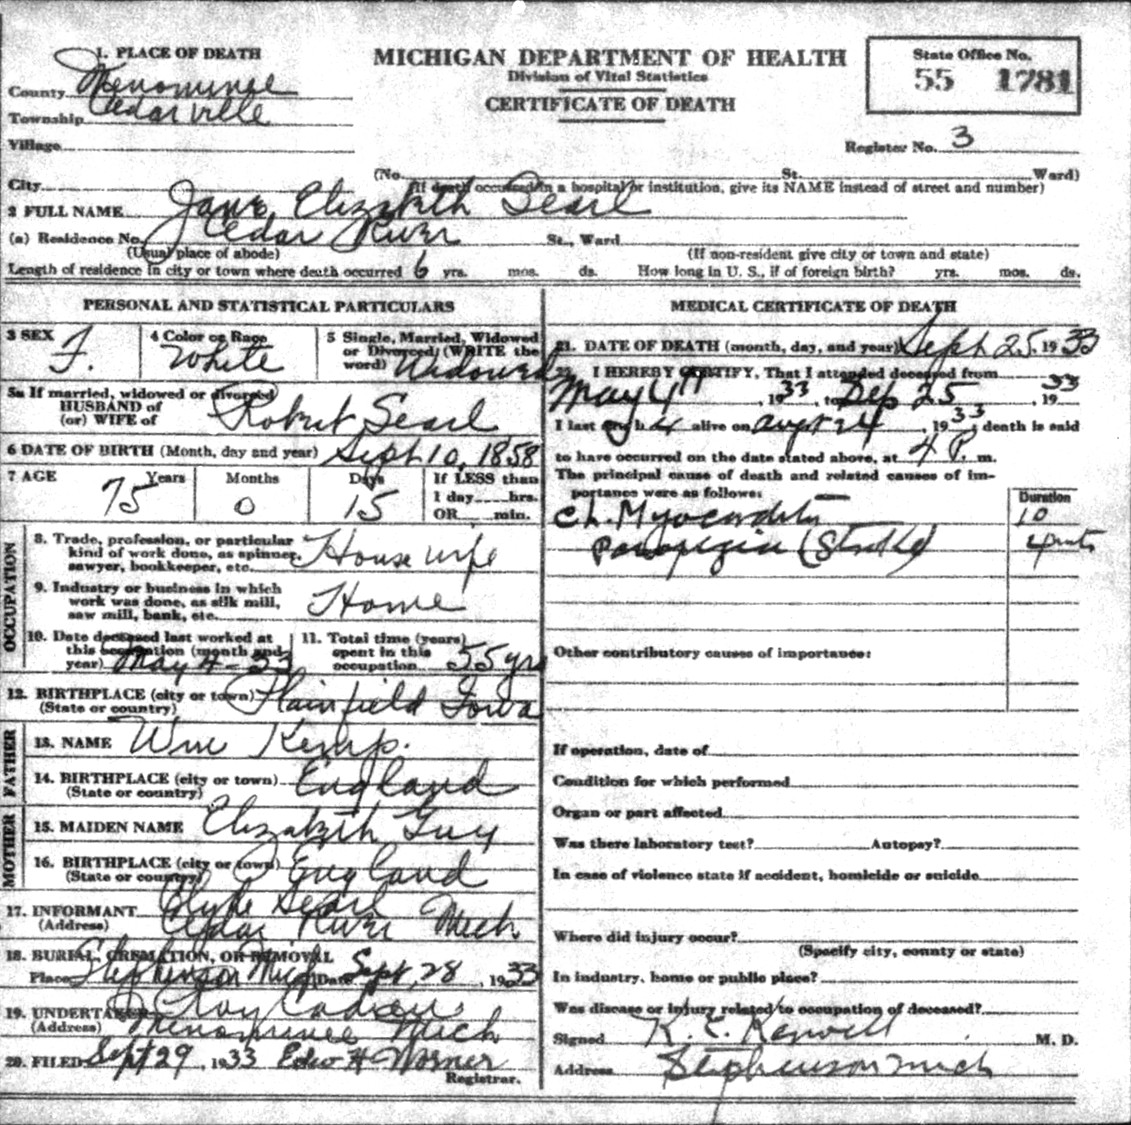 1. PLACE OF DEATH
County Menominee
Township Cedarville
Village
City
MICHIGAN DEPARTMENT OF HEALTH
Division of Vital Statistics
CERTIFICATE OF DEATH
State Office No.
55 1781
Register No. 3
(No. St. Ward)
(If death occurred in a hospital or institution, give its NAME instead of street and number)
2 FULL NAME Jane Elizabeth Searl
(a) Residence No. Cedar River St., Ward
(Usual place of abode) (If non-resident give city or town and state)
Length of residence in city or town where death occurred 6 yrs. mos. ds. How long in U. S., if of foreign birth? yrs. mos. ds.
PERSONAL AND STATISTICAL PARTICULARS
3 SEX F.
4 Color or Race White
5 Single, Married, Widowed or Divorced (WRITE the word) Widowed
5a If married, widowed or divorced
HUSBAND of
(or) WIFE of Robert Searl
6 DATE OF BIRTH (Month, day and year) Sept 10, 1858
7 AGE Years Months Days If LESS than
75 0 15 1 day hrs.
OR min.
OCCUPATION
8. Trade, profession, or particular
kind of work done, as spinner, House wife
sawyer, bookkeeper, etc.
9. Industry or business in which
work was done, as silk mill, Home
saw mill, bank, etc.
10. Date deceased last worked at
this occupation (month and
year) May 4-33
11. Total time (years)
spent in this
occupation 55 yrs
12. BIRTHPLACE (city or town) Plainfield Iowa
(State or country)
FATHER
13. NAME Wm Kemp.
14. BIRTHPLACE (city or town) England
(State or country)
MOTHER
15. MAIDEN NAME Elizabeth Guy
16. BIRTHPLACE (city or town) England
(State or country)
17. INFORMANT Clyde Searl
(Address) Cedar River Mich
18. BURIAL, CREMATION, OR REMOVAL
Place Stephenson Mich Date Sept. 28, 1933
19. UNDERTAKER Roy
(Address) Menominee Mich
20. FILED Sept 29, 1933 Edw H Worner
Registrar.
MEDICAL CERTIFICATE OF DEATH
21. DATE OF DEATH (month, day, and year) Sept 25, 1933
22. I HEREBY CERTIFY, That I attended deceased from
May 4", 1933, to Sep 25, 1933
I last saw h alive on Augt 24, 1933; death is said
to have occurred on the date stated above, at 4 P. m.
The principal cause of death and related causes of im-
portance were as follows: Duration
Ch. Myocarditis 10
(Stroke)
Other contributory causes of importance:
If operation, date of
Condition for which performed
Organ or part affected
Was there laboratory test? Autopsy?
In case of violence state if accident, homicide or suicide
Where did injury occur?
(Specify city, county or state)
In industry, home or public place?
Was disease or injury related to occupation of deceased?
Signed K. E. M. D.
Address Stephenson Mich